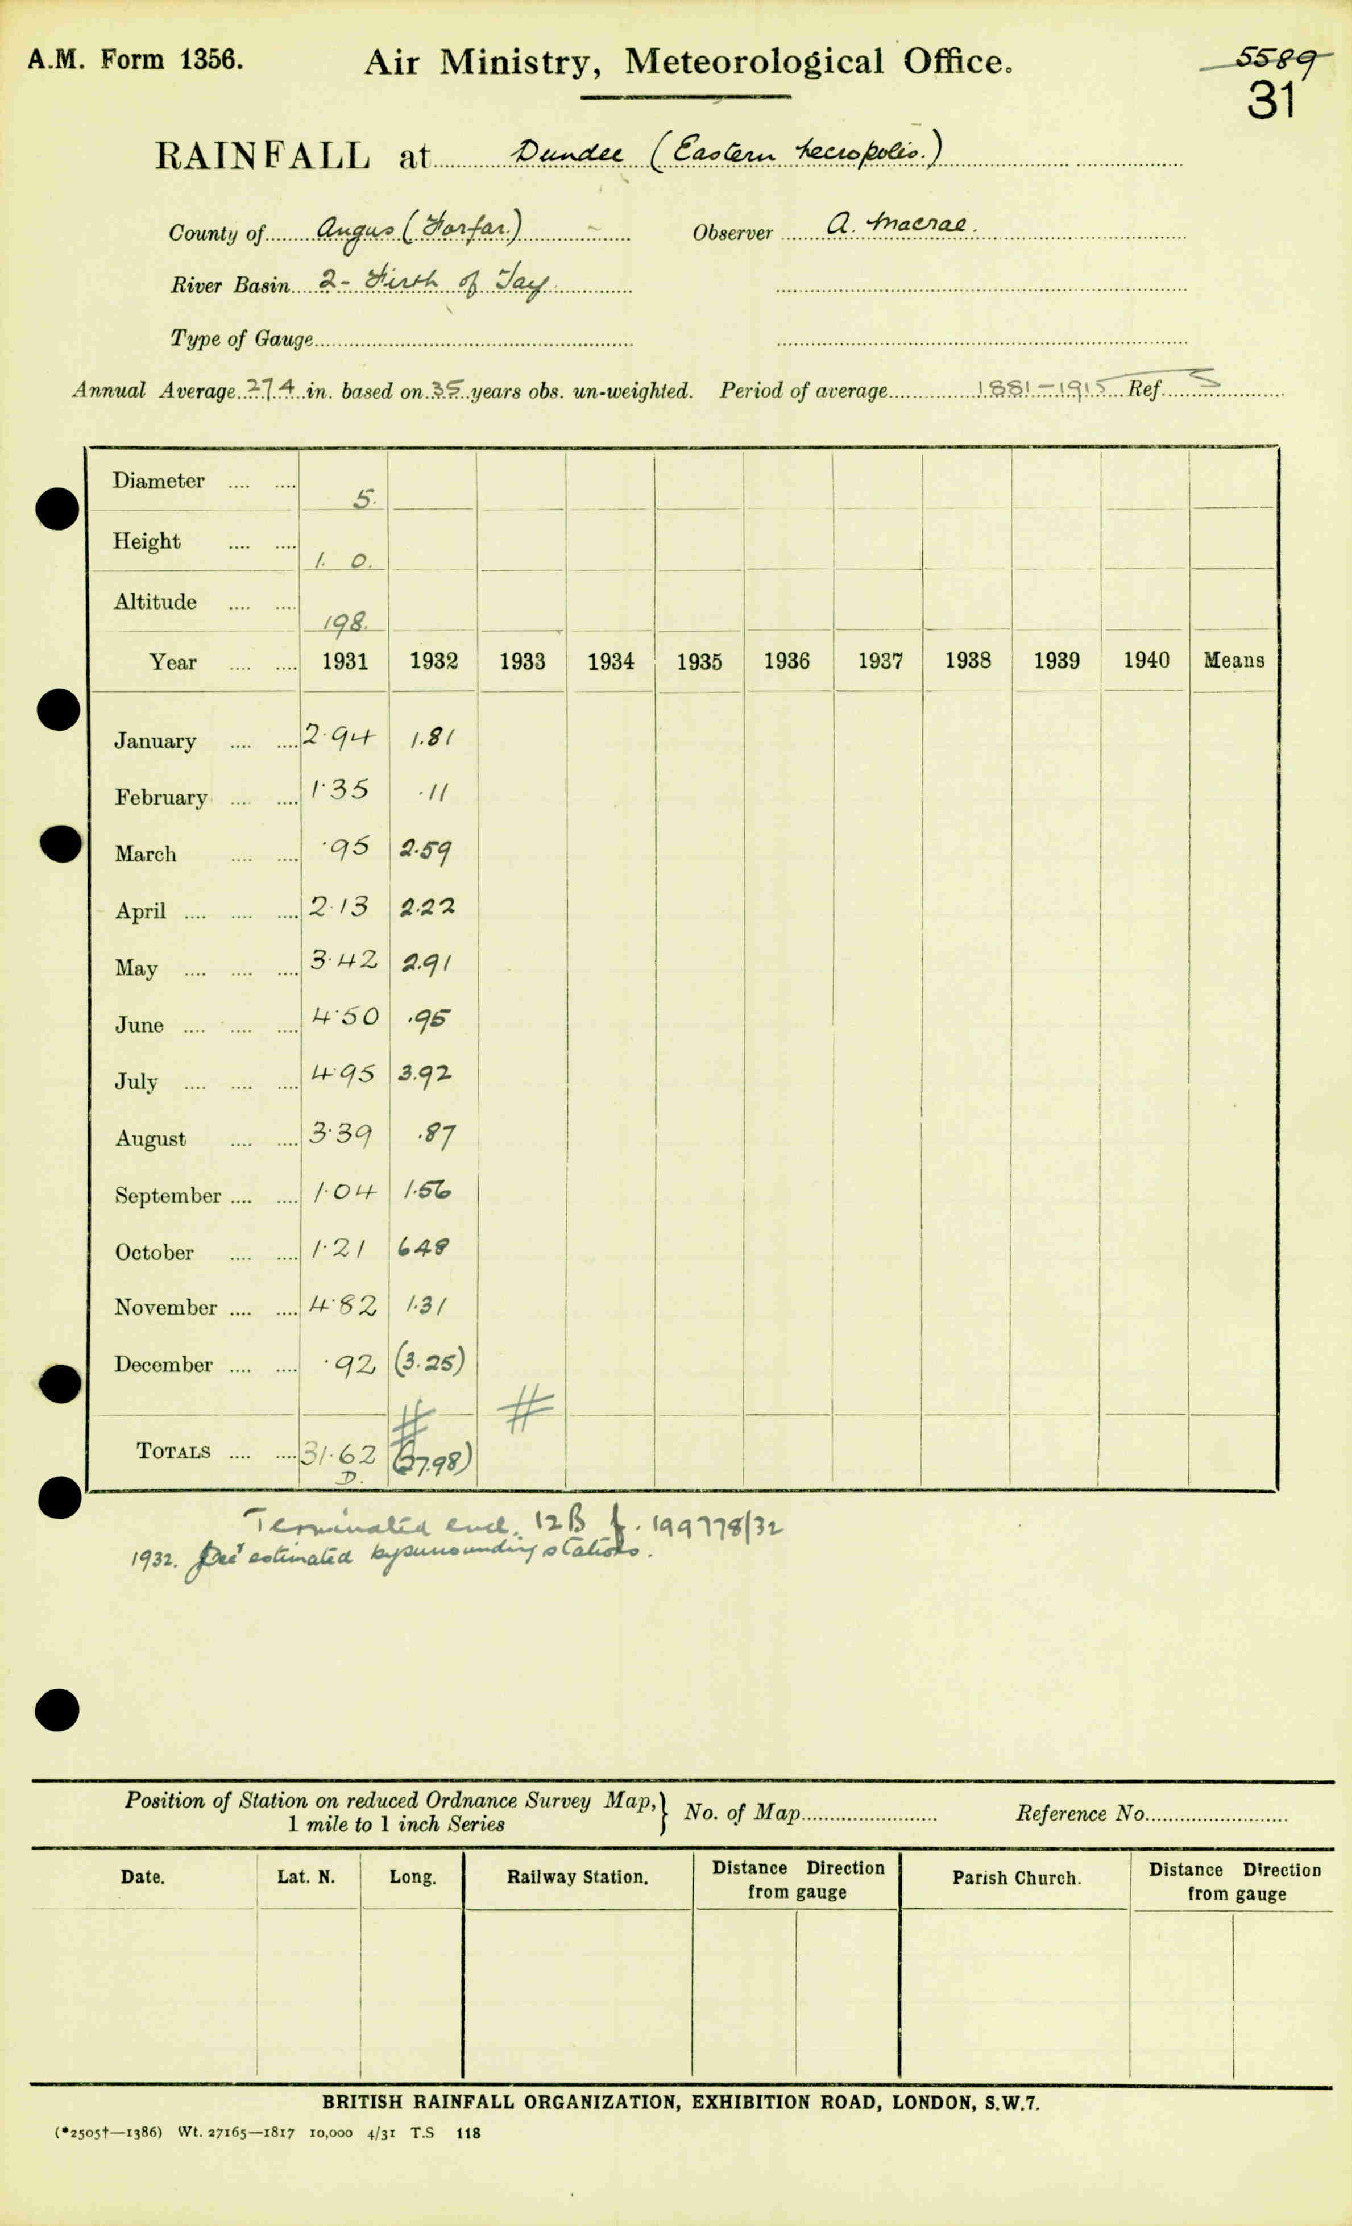 A.M. Form 1356.
Air Ministry, Meteorological Office.
5589
31
RAINFALL at Dundee (Eastern Necropolis.)
County of Angus (Forfar.) Observer A. Macrae.
River Basin 2- Firth of Tay
Type of Gauge
Annual Average 27.4 in. based on 35 years obs. un-weighted. Period of average 1881-1915 Ref. 5
Diameter 5.
Height 1. 0.
Altitude 198.
Year 1931 1932 1933 1934 1935 1936 1937 1938 1939 1940 Means
January 2.94 1.81
February 1.35 .11
March .95 2.59
April 2.13 2.22
May 3.42 2.91
June 4.50 .95
July 4.95 3.92
August 3.39 .87
September 1.04 1.56
October 1.21 6.48
November 4.82 1.31
December .92 (3.25)
# #
TOTALS 31.62 (27.98)
D.
Terminated end. 12B f. 199778/32
1932. Dec estimated by surrounding stations.
Position of Station on reduced Ordnance Survey Map, } No. of Map Reference No.
1 mile to 1 inch Series
Date. Lat. N. Long. Railway Station. Distance Direction from gauge Parish Church. Distance Direction from gauge
BRITISH RAINFALL ORGANIZATION, EXHIBITION ROAD, LONDON, S.W.7.
(*2505†—1386) Wt. 27165—1817 10,000 4/31 T.S 118